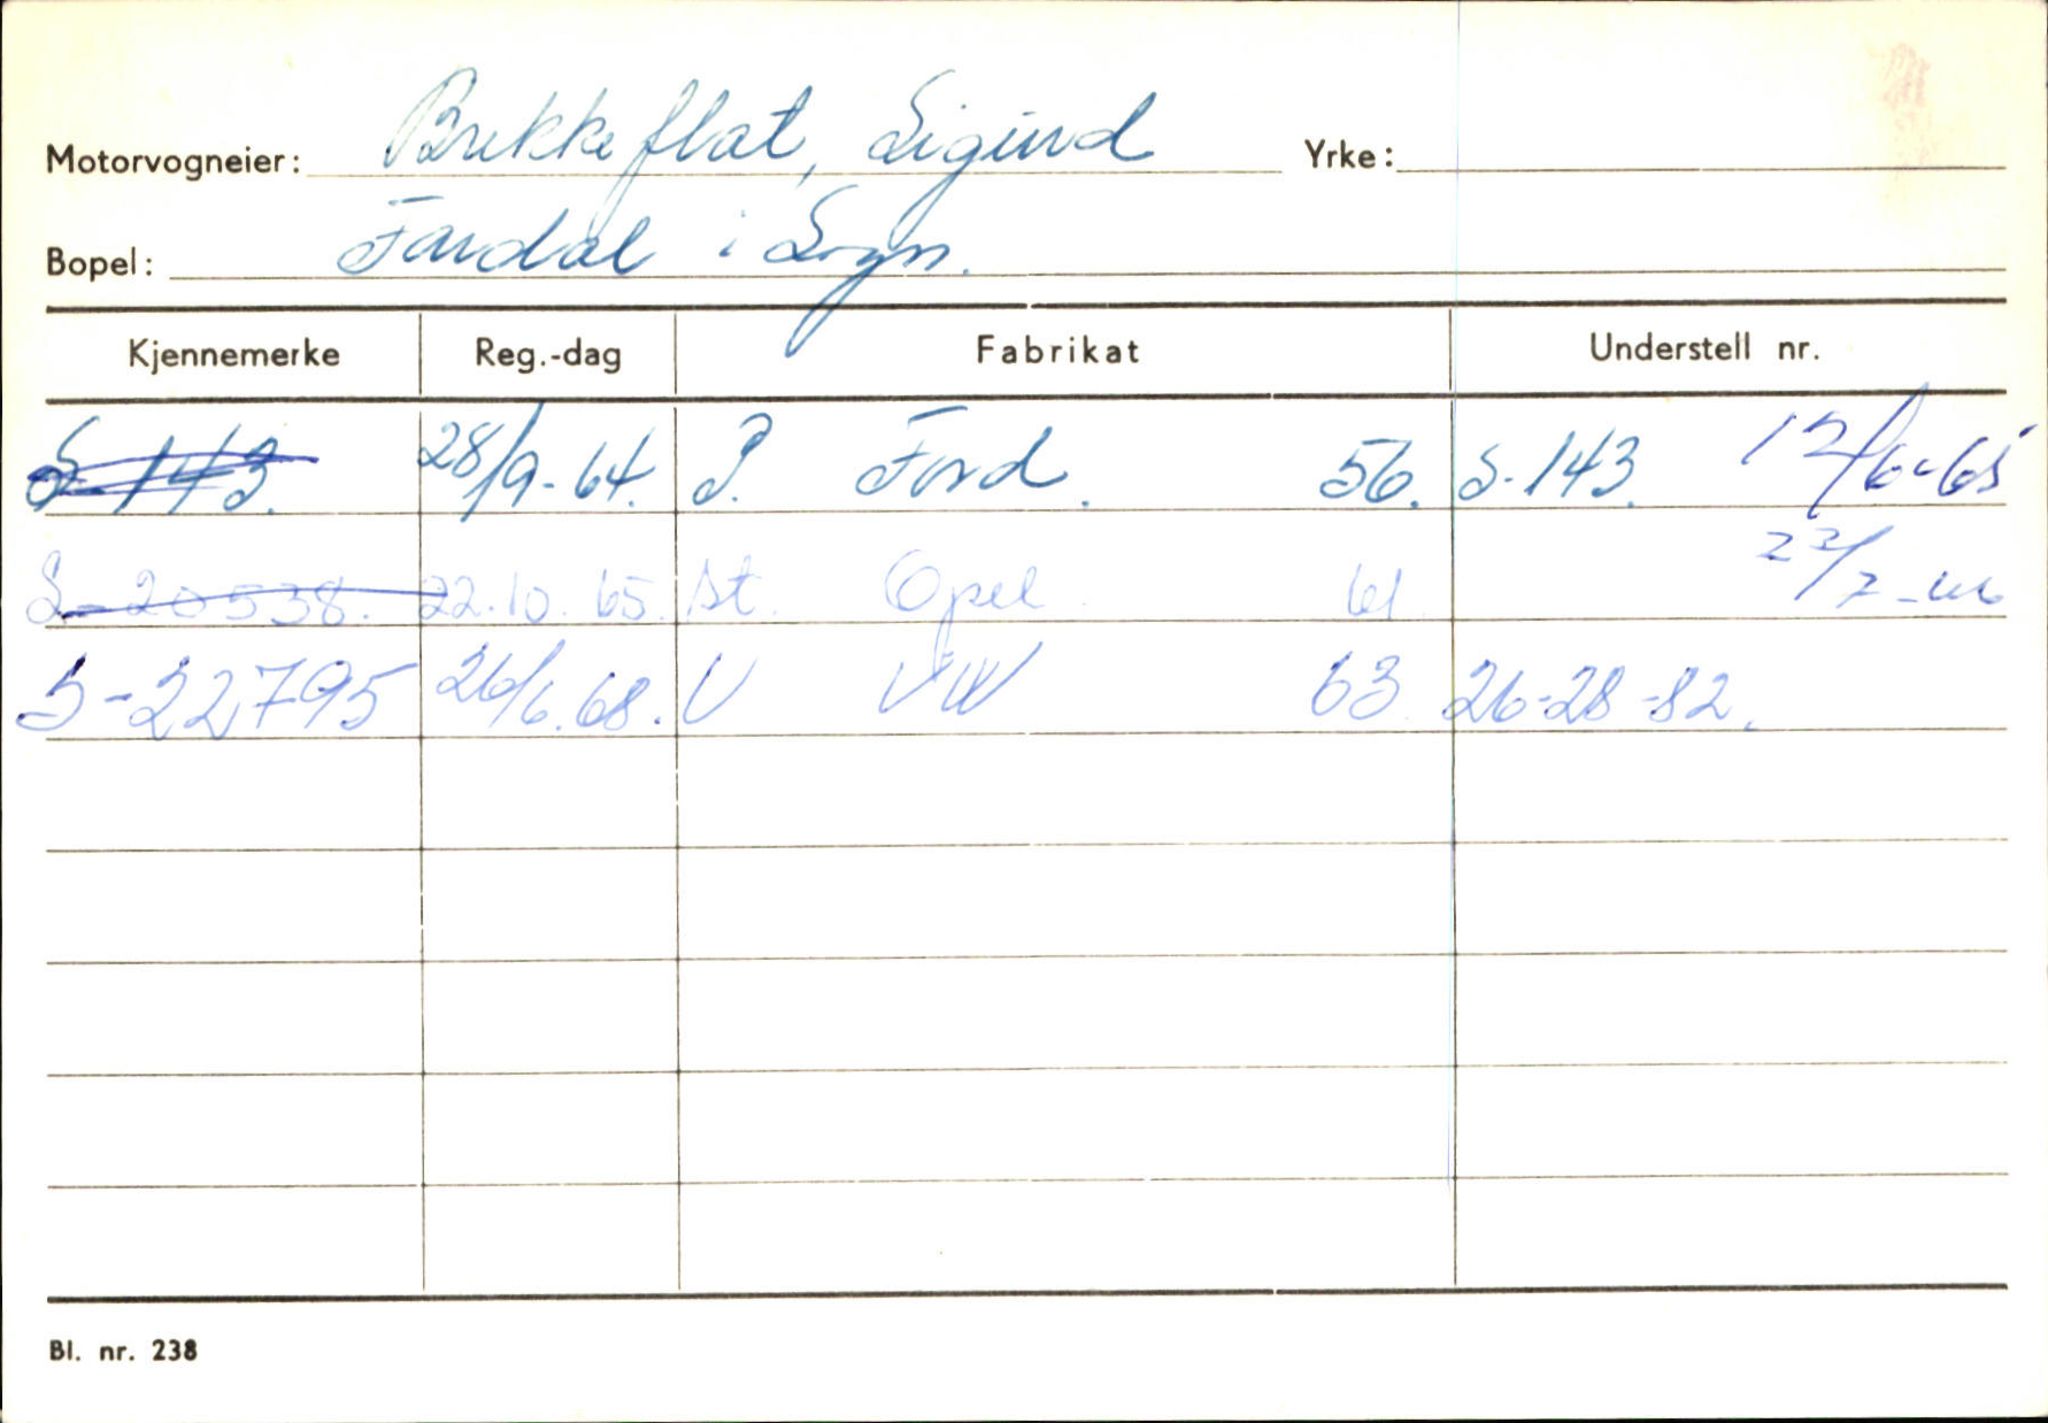 Motorvogneier: Brekkeflat, Sigurd Yrke:
Bopel: Fardal i Sogn.
Kjennemerke Reg.-dag Fabrikat Understell nr.
S-143. 28/9-64. P. Ford. 56. S-143. 12/6-65
S-20538. 22.10.65. St. Opel 61 22/7-66
S-22795 26/6.68. V VW 63 26-28-82.
Bl. nr. 238